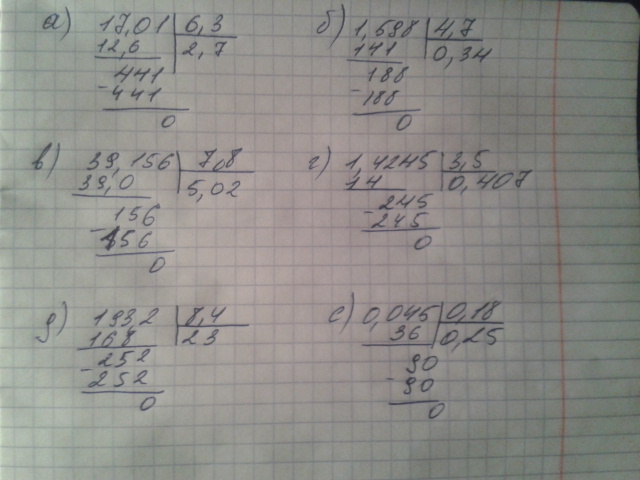 а) 17,01 6,3
12,6 2,7
441
- 441
0
б) 1,598 4,7
141 0,34
188
- 188
0
в) 39,156 7,8
39,0 5,02
- 156
156
0
г) 1,4245 3,5
14 0,407
- 245
245
0
д) 193,2 8,4
168 23
- 252
252
0
е) 0,045 0,18
36 0,25
90
- 90
0